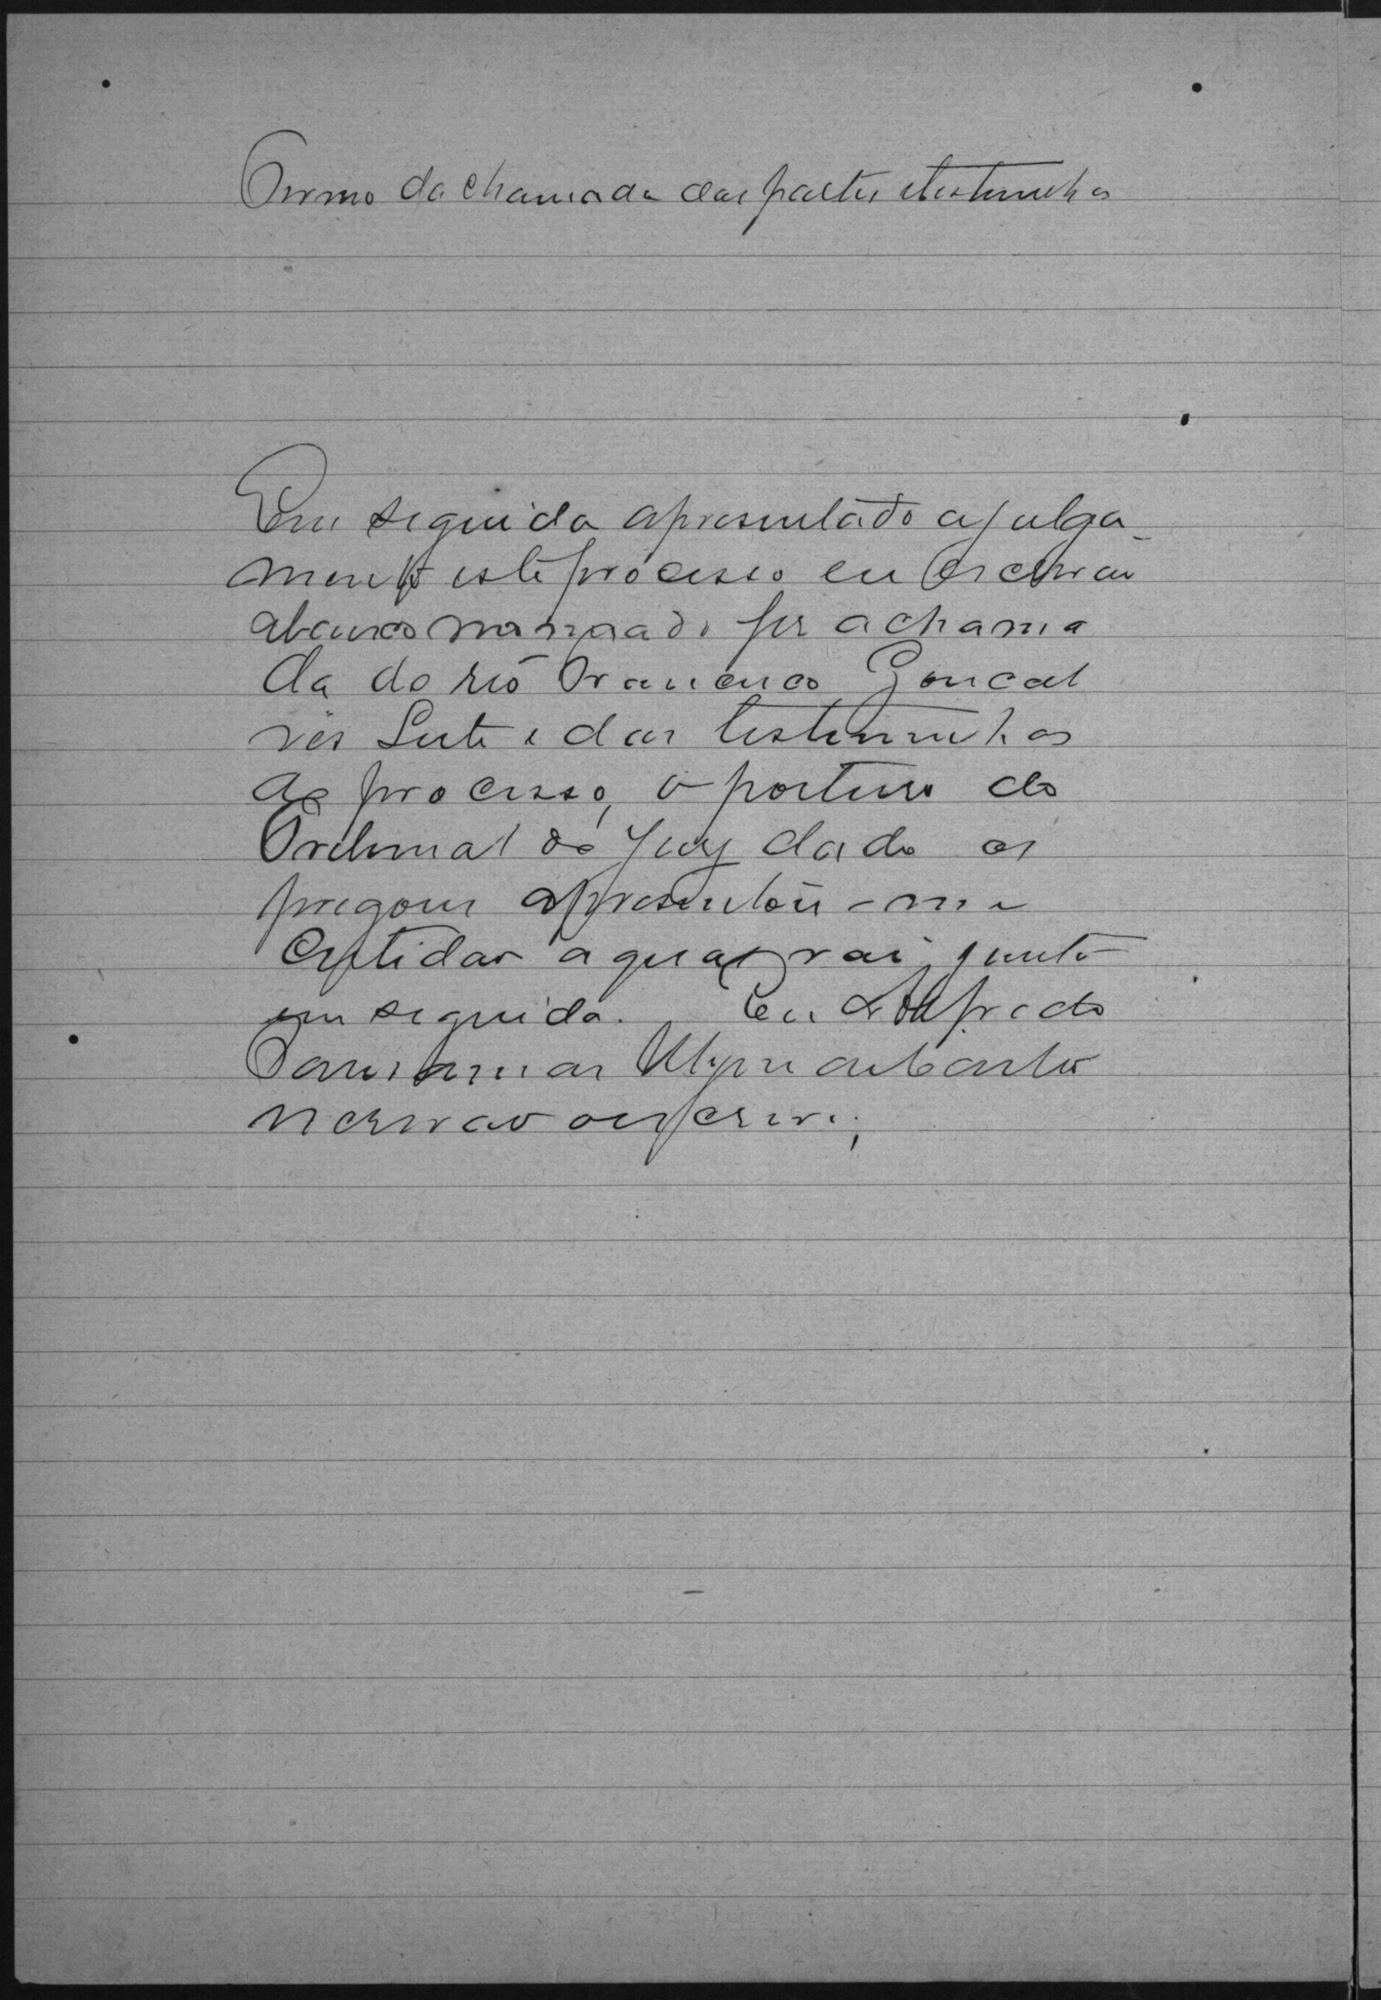 Termo da chamada das partes e testemunhas
Em seguida apresentado a julga-
mento este processo eu Escrivão
abaixo nomeado fiz a chama
da do réo Francisco Goncal
ves Leite e das testemunhas
do processo, o porteiro do
Tribunal do Jury dado os
pregoes apresentou-me
Certidão a qual vai junto
em seguida. Eu Alfredo
escrivão o escrevi;